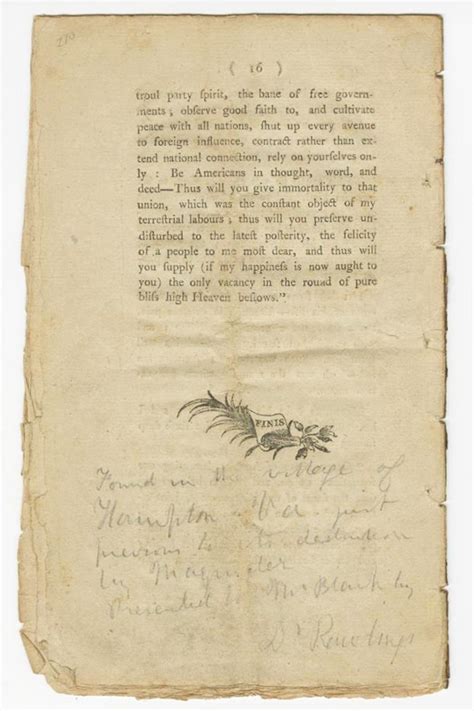 210
( 16 )
troul party spirit, the bane of free govern-
ments ; obſerve good faith to, and cultivate
peace with all nations, ſhut up every avenue
to foreign influence, contract rather than ex-
tend national connection, rely on yourſelves on-
ly : Be Americans in thought, word, and
deed—Thus will you give immortality to that
union, which was the conſtant object of my
terreſtrial labours ; thus will you preſerve un-
diſturbed to the lateſt poſterity, the felicity
of a people to me moſt dear, and thus will
you ſupply (if my happineſs is now aught to
you) the only vacancy in the round of pure
bliſs high Heaven beſtows."
FINIS
Found in the village of
Hampton Va. just
previous to its destruction
by Magruder
Presented to Mrs Blank by
Dr Rawlings